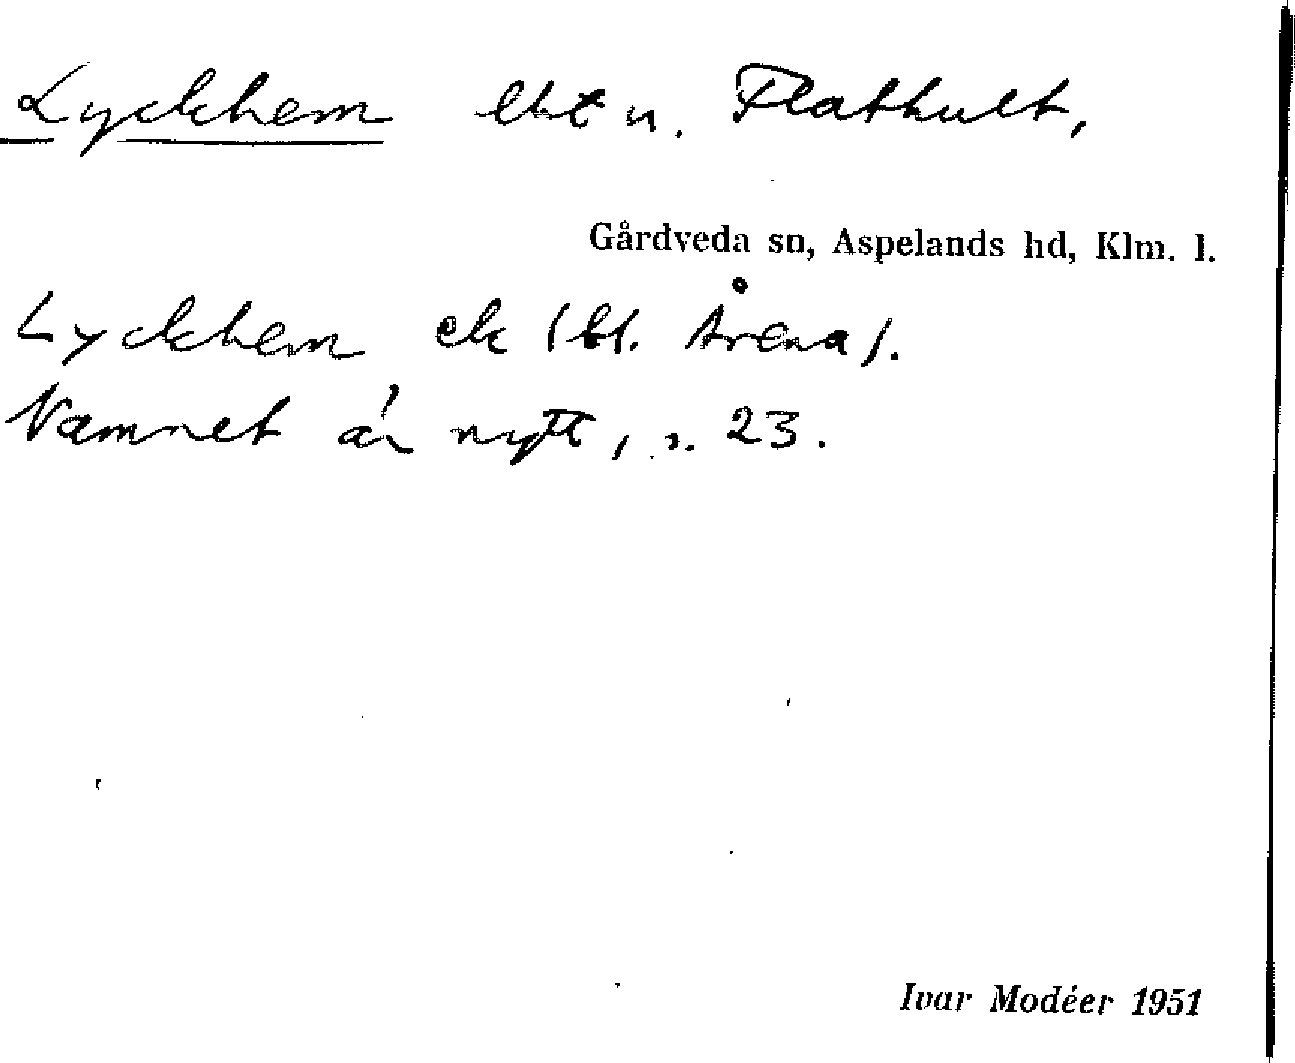 Lyckhem lht u. Flathult,
Gårdveda sn, Aspelands hd, Klm. l.
Lyckhem ek (bl. Årena).
Namnet är nytt, s. 23.
Ivar Modéer 1951